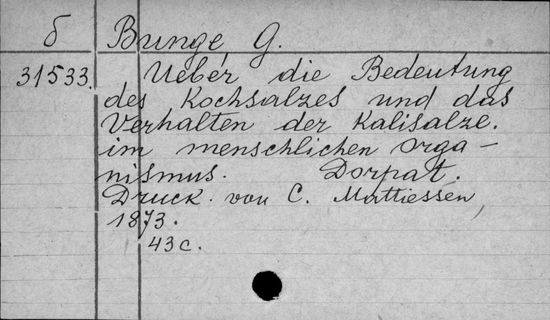 б Bunge, G.
31533. Ueber die Bedeutung
des Kochsalzes und das
Verhalten der Kalisalze.
im menschlichen orga-
nismus. Dorpat.
Druck. von C. Mattiessen,
1873.
43 c.